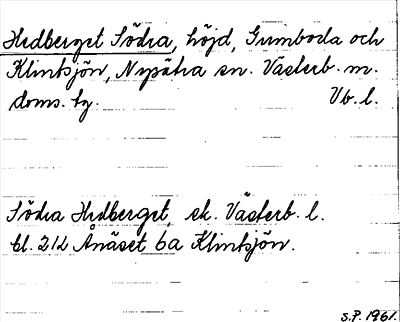 Hedberget Södra, höjd, Gumboda och
Klintsjön, Nysätra sn. Västerb. m.
doms. tg. Vb. l.
Södra Hedberget, ek. Västerb. l.
bl. 212 Ånäset 6a Klintsjön.
S.P. 1961.